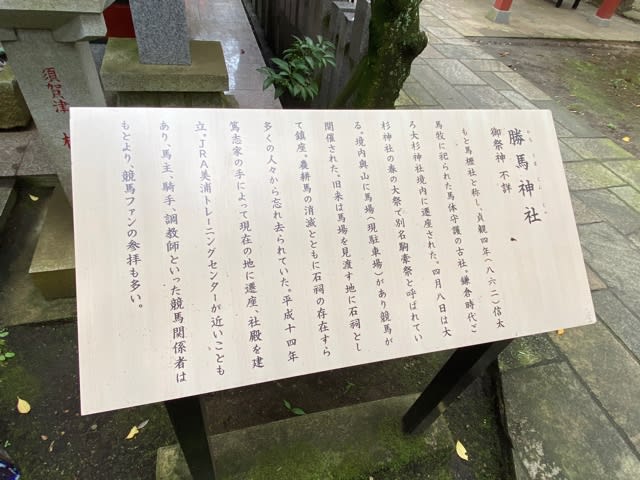 勝馬神社
かちうまじんじゃ
御祭神 不詳
もと馬櫪社と称し、貞観四年(八六二)信太
馬牧に祀られた馬体守護の古社。鎌倉時代ご
ろ大杉神社境内に遷座された。四月八日は大
杉神社の春の大祭で別名駒牽祭と呼ばれてい
る。境内奥山に馬場(現駐車場)があり競馬が
開催された。旧来は馬場を見渡す地に石祠とし
て鎮座、農耕馬の消滅とともに石祠の存在すら
多くの人々から忘れ去られていた。平成十四年
篤志家の手によって現在の地に遷座、社殿を建
立。JRA美浦トレーニングセンターが近いことも
あり、馬主、騎手、調教師といった競馬関係者は
もとより、競馬ファンの参拝も多い。
須賀津